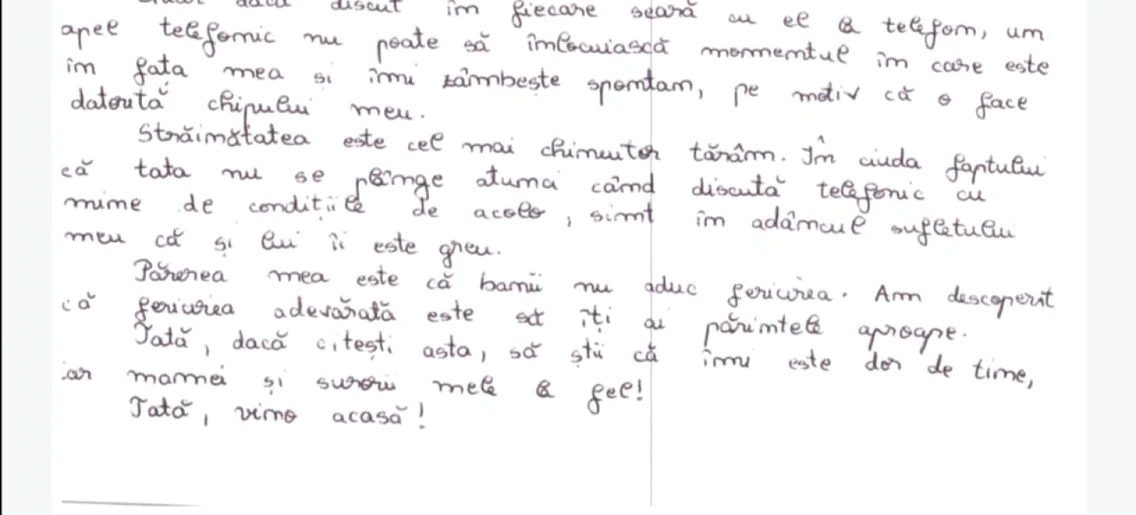 dacă discut în fiecare seară cu el la telefon, un
apel telefonic nu poate să înlocuiască momentul în care este
în fața mea și îmi zâmbește spontan, pe motiv că o face
datorită chipului meu.
Străinătatea este cel mai chinuitor tărâm. În ciuda faptului
că tata nu se plânge atunci când discută telefonic cu
mine de condițiile de acolo, simt în adâncul sufletului
meu că și lui îi este greu.
Părerea mea este că banii nu aduc fericirea. Am descoperit
că fericirea adevărată este să îți ai părintele aproape.
Tată, dacă citești asta, să știi că îmi este dor de tine,
iar mamei și surorii mele la fel!
Tată, vino acasă!